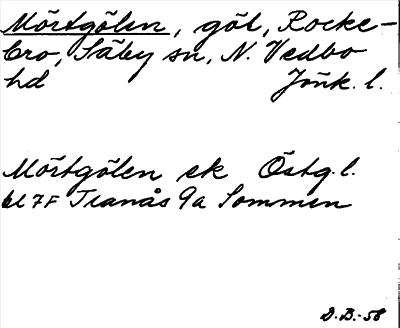 Mörtgölen, göl, Rocke-
bro, Säby sn, N. Vedbo
hd Jönk. l.
Mörtgölen ek Östg. l.
bl 7F Tranås 9a Sommen
D.B.-58